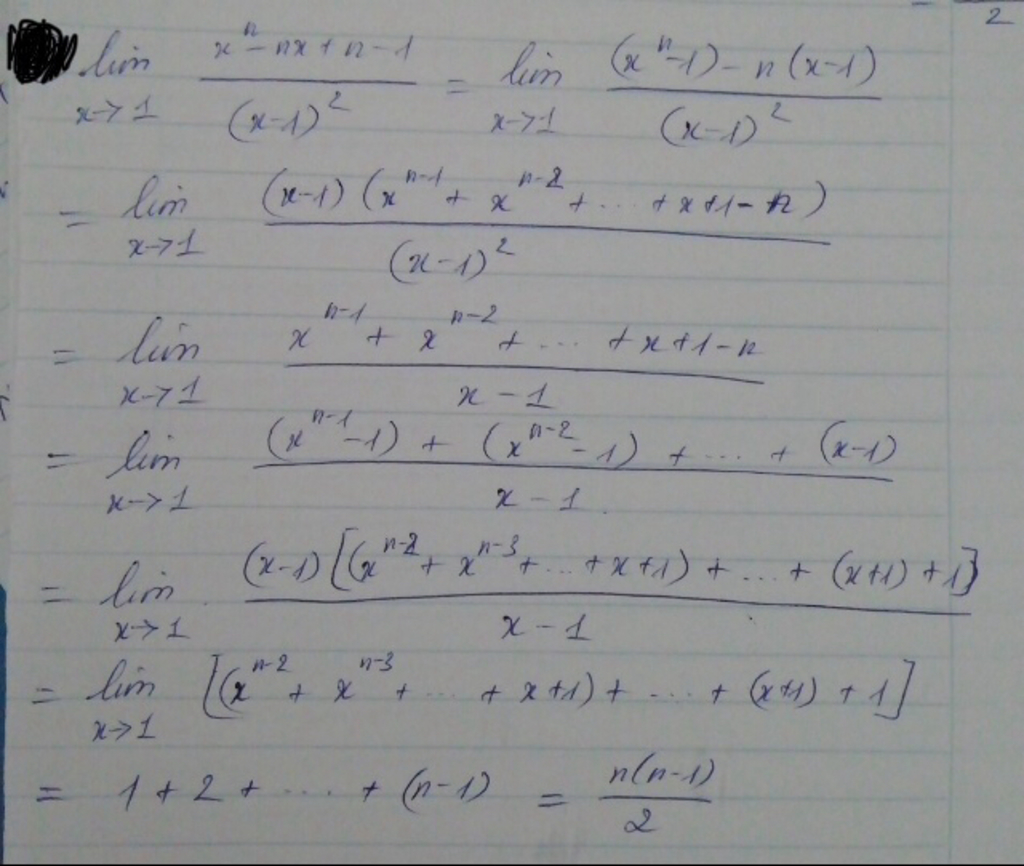 2
lim_{x→1} (x^n - nx + n - 1)/(x-1)^2 = lim_{x→1} ((x^n - 1) - n(x-1))/(x-1)^2
= lim_{x→1} ((x-1)(x^{n-1} + x^{n-2} + ... + x + 1 - n))/(x-1)^2
= lim_{x→1} (x^{n-1} + x^{n-2} + ... + x + 1 - n)/(x - 1)
= lim_{x→1} ((x^{n-1} - 1) + (x^{n-2} - 1) + ... + (x-1))/(x - 1)
= lim_{x→1} ((x-1)[(x^{n-2} + x^{n-3} + ... + x + 1) + ... + (x+1) + 1])/(x - 1)
= lim_{x→1} [(x^{n-2} + x^{n-3} + ... + x + 1) + ... + (x+1) + 1]
= 1 + 2 + ... + (n-1) = n(n-1)/2